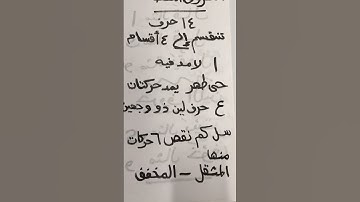 ١٤ حرف
تنقسم إلى ٤ أقسام
ا لا مد فيه
حى طهر يمد حركتان
ع حرف لين ذو وجهين
سل كم نقص ٦ حركات
منها
المثقل - المخفف